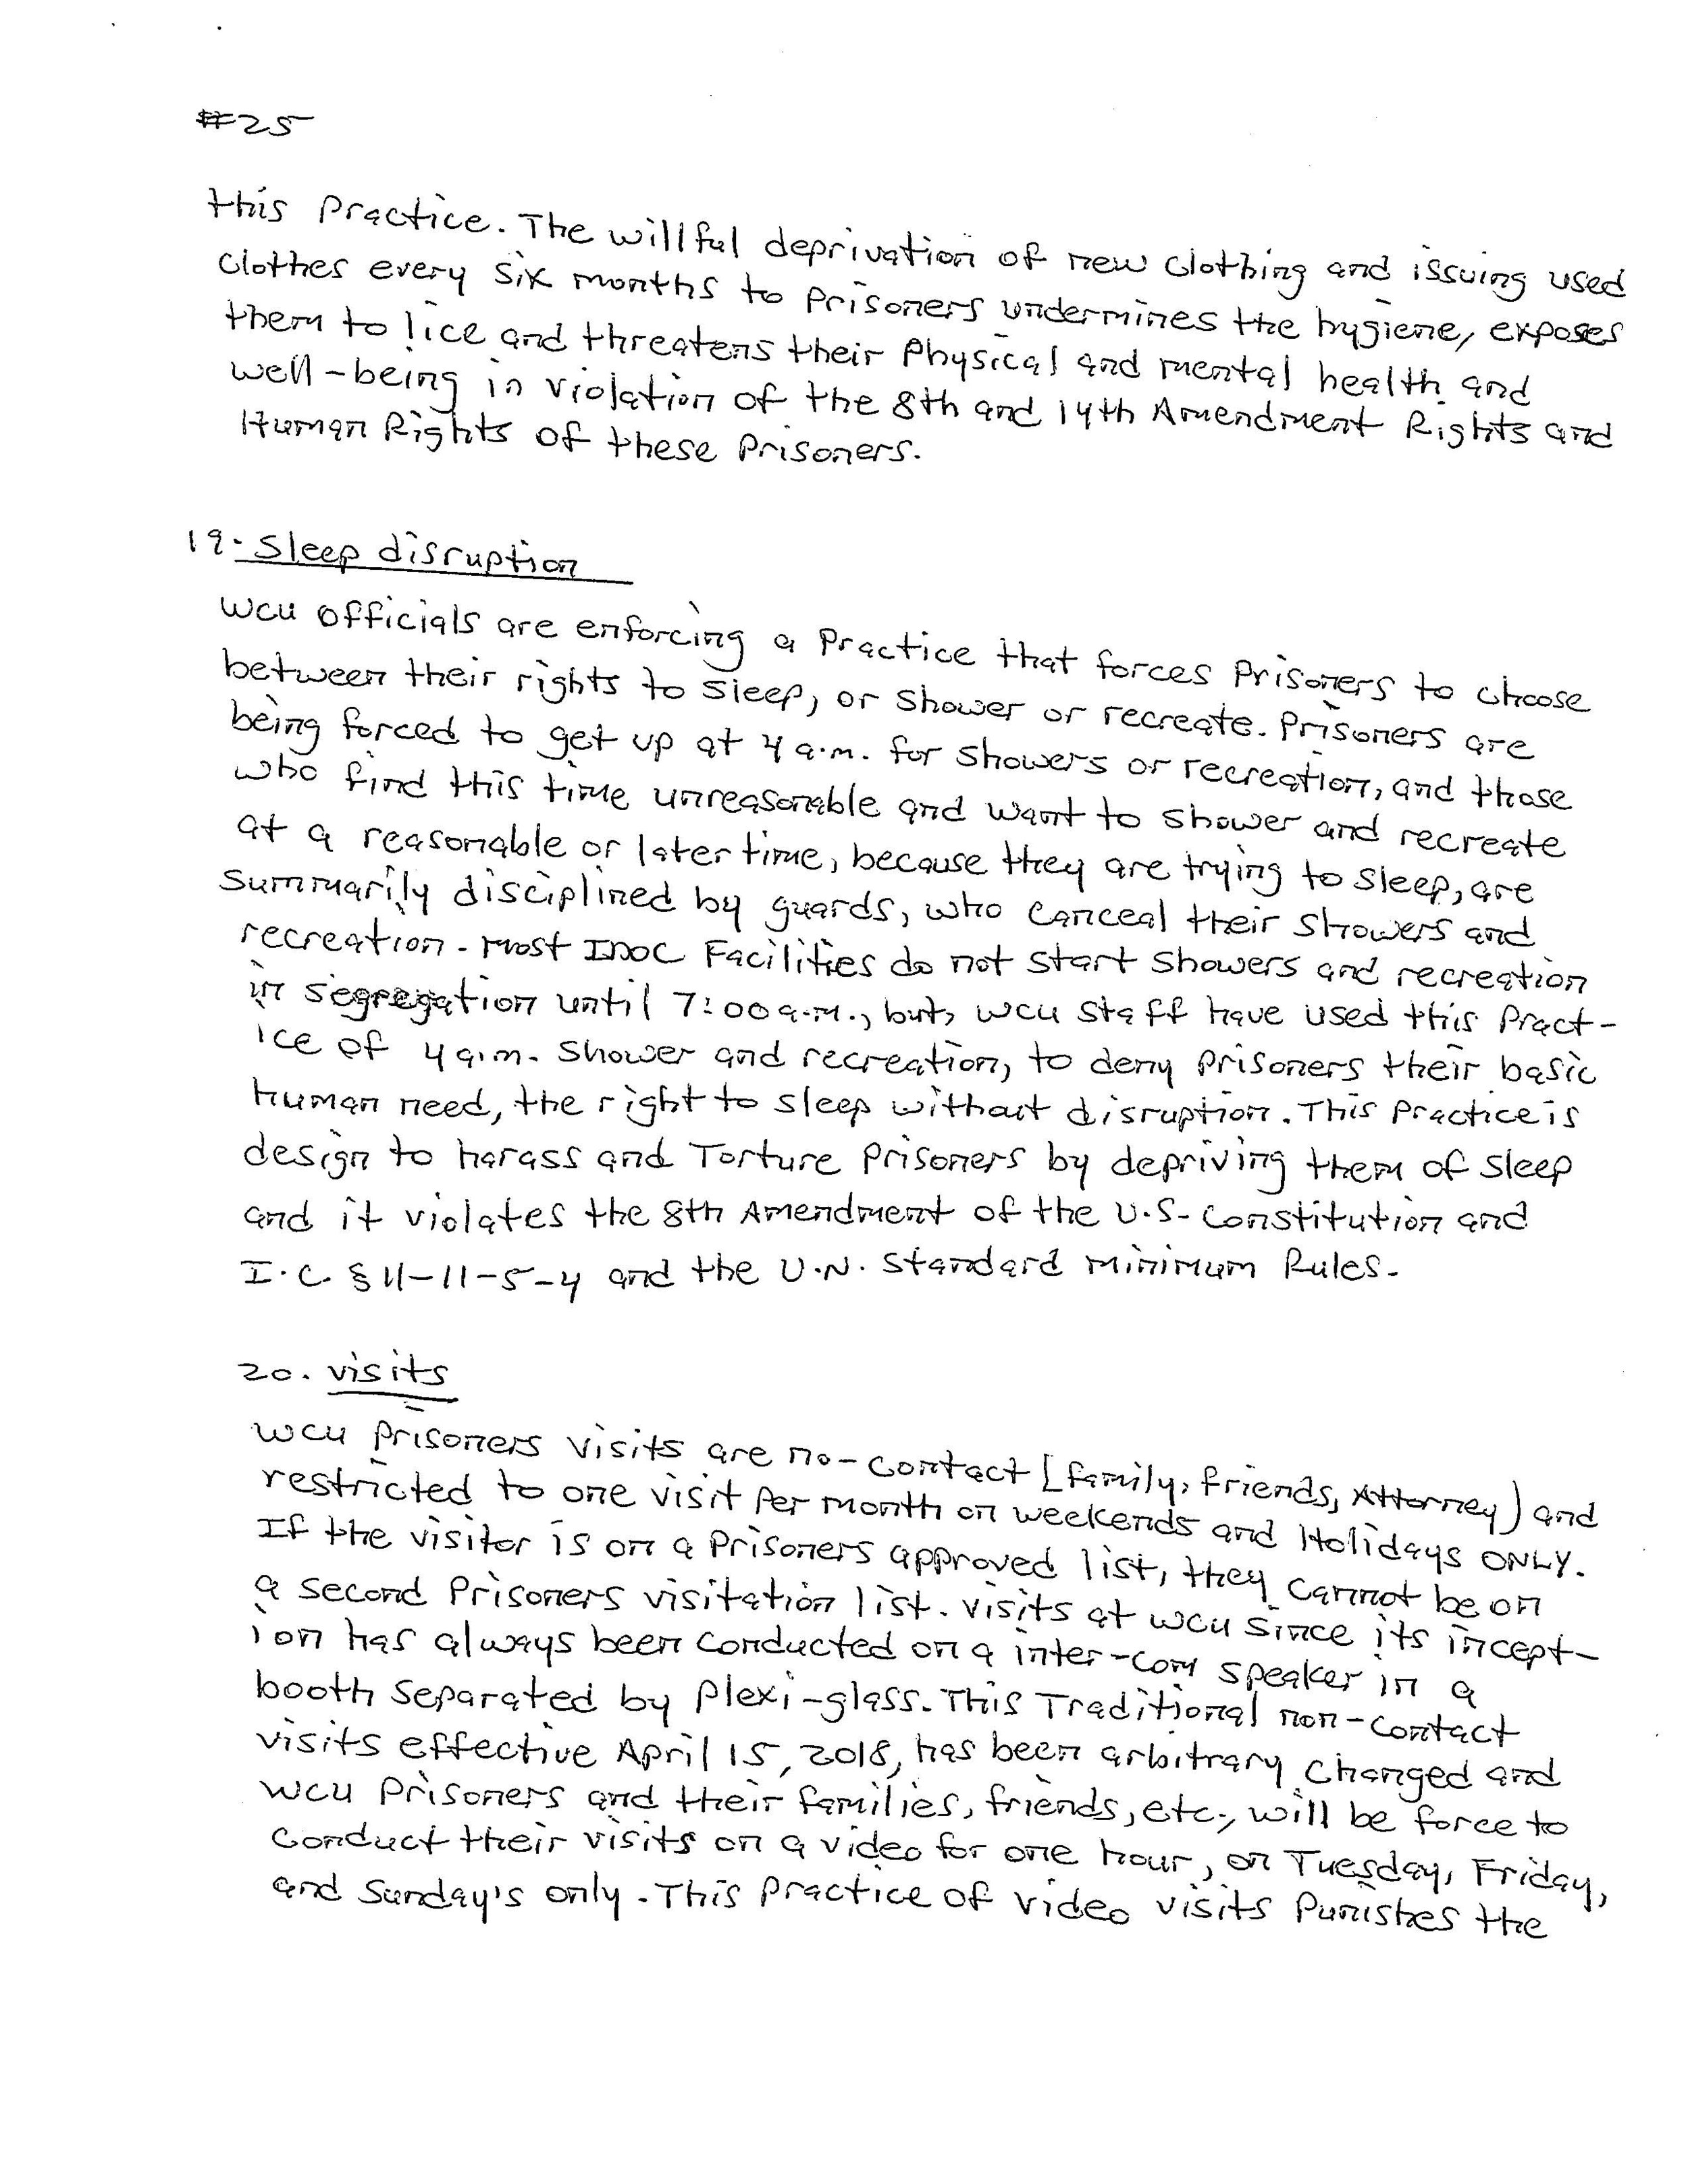 #25
this Practice. The willful deprivation of new clothing and issuing used
clothes every six months to Prisoners undermines the hygiene, exposes
them to lice and threatens their Physical and mental health and
well-being in violation of the 8th and 14th Amendment Rights and
Human Rights of these Prisoners.
19. Sleep disruption
WCU officials are enforcing a Practice that forces Prisoners to choose
between their rights to sleep, or shower or recreate. Prisoners are
being forced to get up at 4 a.m. for showers or recreation, and those
who find this time unreasonable and want to shower and recreate
at a reasonable or later time, because they are trying to sleep, are
summarily disciplined by guards, who canceal their showers and
recreation. Most IDOC Facilities do not start showers and recreation
in segregation until 7:00 a.m., but, WCU staff have used this Pract-
ice of 4 a.m. shower and recreation, to deny Prisoners their basic
human need, the right to sleep without disruption. This Practice is
design to harass and Torture Prisoners by depriving them of sleep
and it violates the 8th Amendment of the U.S. Constitution and
I.C. § 11-11-5-4 and the U.N. Standard Minimum Rules.
20. visits
WCU Prisoners visits are no-contact [family, friends, Attorney) and
restricted to one visit Per month on weekends and Holidays ONLY.
If the visitor is on a Prisoners approved list, they cannot be on
a second Prisoners visitation list. visits at WCU since its incept-
ion has always been conducted on a inter-com speaker in a
booth separated by Plexi-glass. This Traditional non-contact
visits effective April 15, 2018, has been arbitrary changed and
WCU Prisoners and their families, friends, etc., will be force to
conduct their visits on a video for one hour, on Tuesday, Friday,
and Sunday's only. This Practice of video visits Punishes the